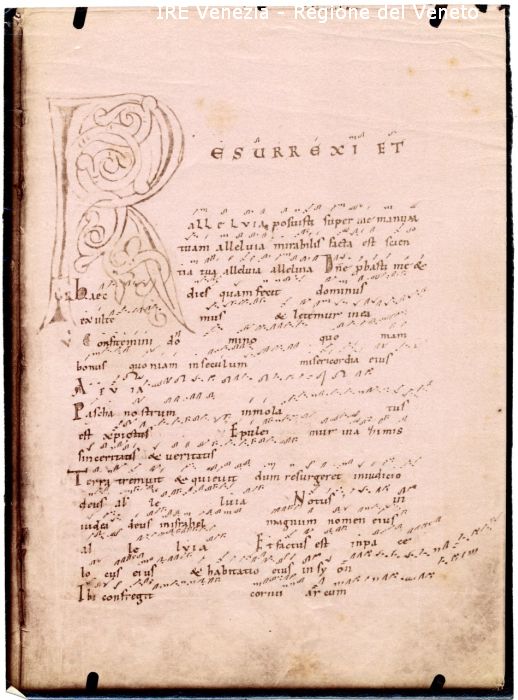 IRE Venezia - Regione del Veneto
RESURREXI ET
alleluia posuisti super me manum
tuam alleluia mirabilis facta est scien
tia tua alleluia alleluia Dne pbasti me &
Haec dies quam fecit dominus
exulte mus & letemur in ea
Confitemini dño mino quo niam
bonus quoniam inseculum misericordia eius
ALVIA
Pascha nostrum immola tus
est xpistus Epulei mur in a
sinceritatis & veritatis
Terra tremuit & quieuit dum resurgeret iniudicio
deus al le luia Notus in
iudea deus inisrahel magnum nomen eius
al le lvia Et factus est inpa ce
lo cus eius & habitatio eius in sy on
Ibi confregit cornu arcum